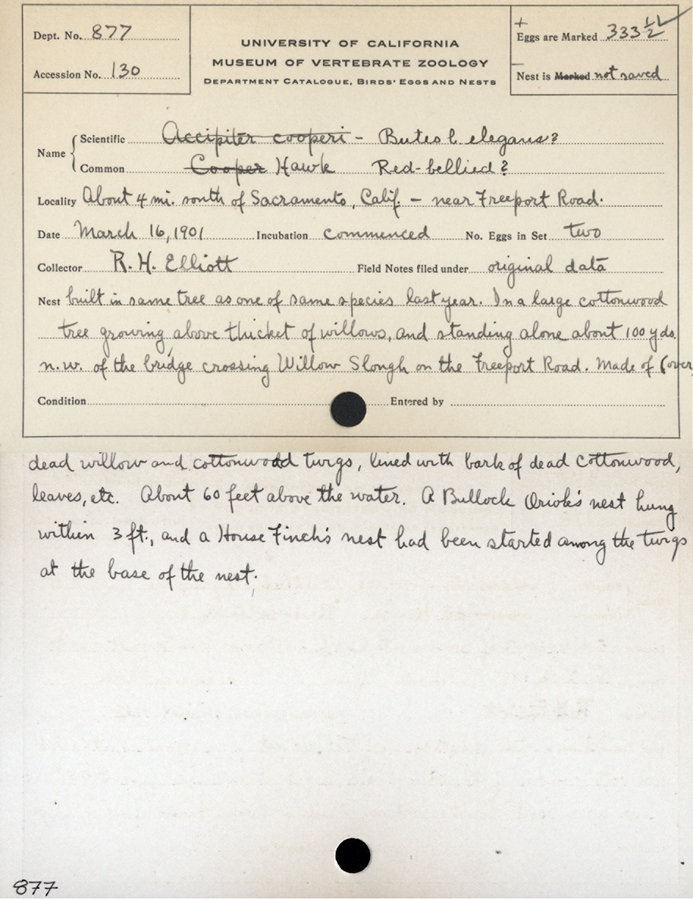 Dept. No. 877
Accession No. 130
UNIVERSITY OF CALIFORNIA
MUSEUM OF VERTEBRATE ZOOLOGY
DEPARTMENT CATALOGUE, BIRDS' EGGS AND NESTS
+
Eggs are Marked 333 1/2
Nest is Marked not saved
Name { Scientific Accipiter cooperi – Buteo l. elegans?
Common Cooper Hawk Red-bellied?
Locality About 4 mi. south of Sacramento, Calif. – near Freeport Road.
Date March 16, 1901 Incubation commenced No. Eggs in Set two
Collector R. H. Elliott Field Notes filed under original data
Nest built in same tree as one of same species last year. In a large cottonwood
tree growing above thicket of willows, and standing alone about 100 yds.
n.w. of the bridge crossing Willow Slough on the Freeport Road. Made of (over
Condition Entered by
dead willow and cottonwood twigs, lined with bark of dead cottonwood,
leaves, etc. About 60 feet above the water. A Bullock Oriole's nest hung
within 3 ft., and a House Finch's nest had been started among the twigs
at the base of the nest.
877